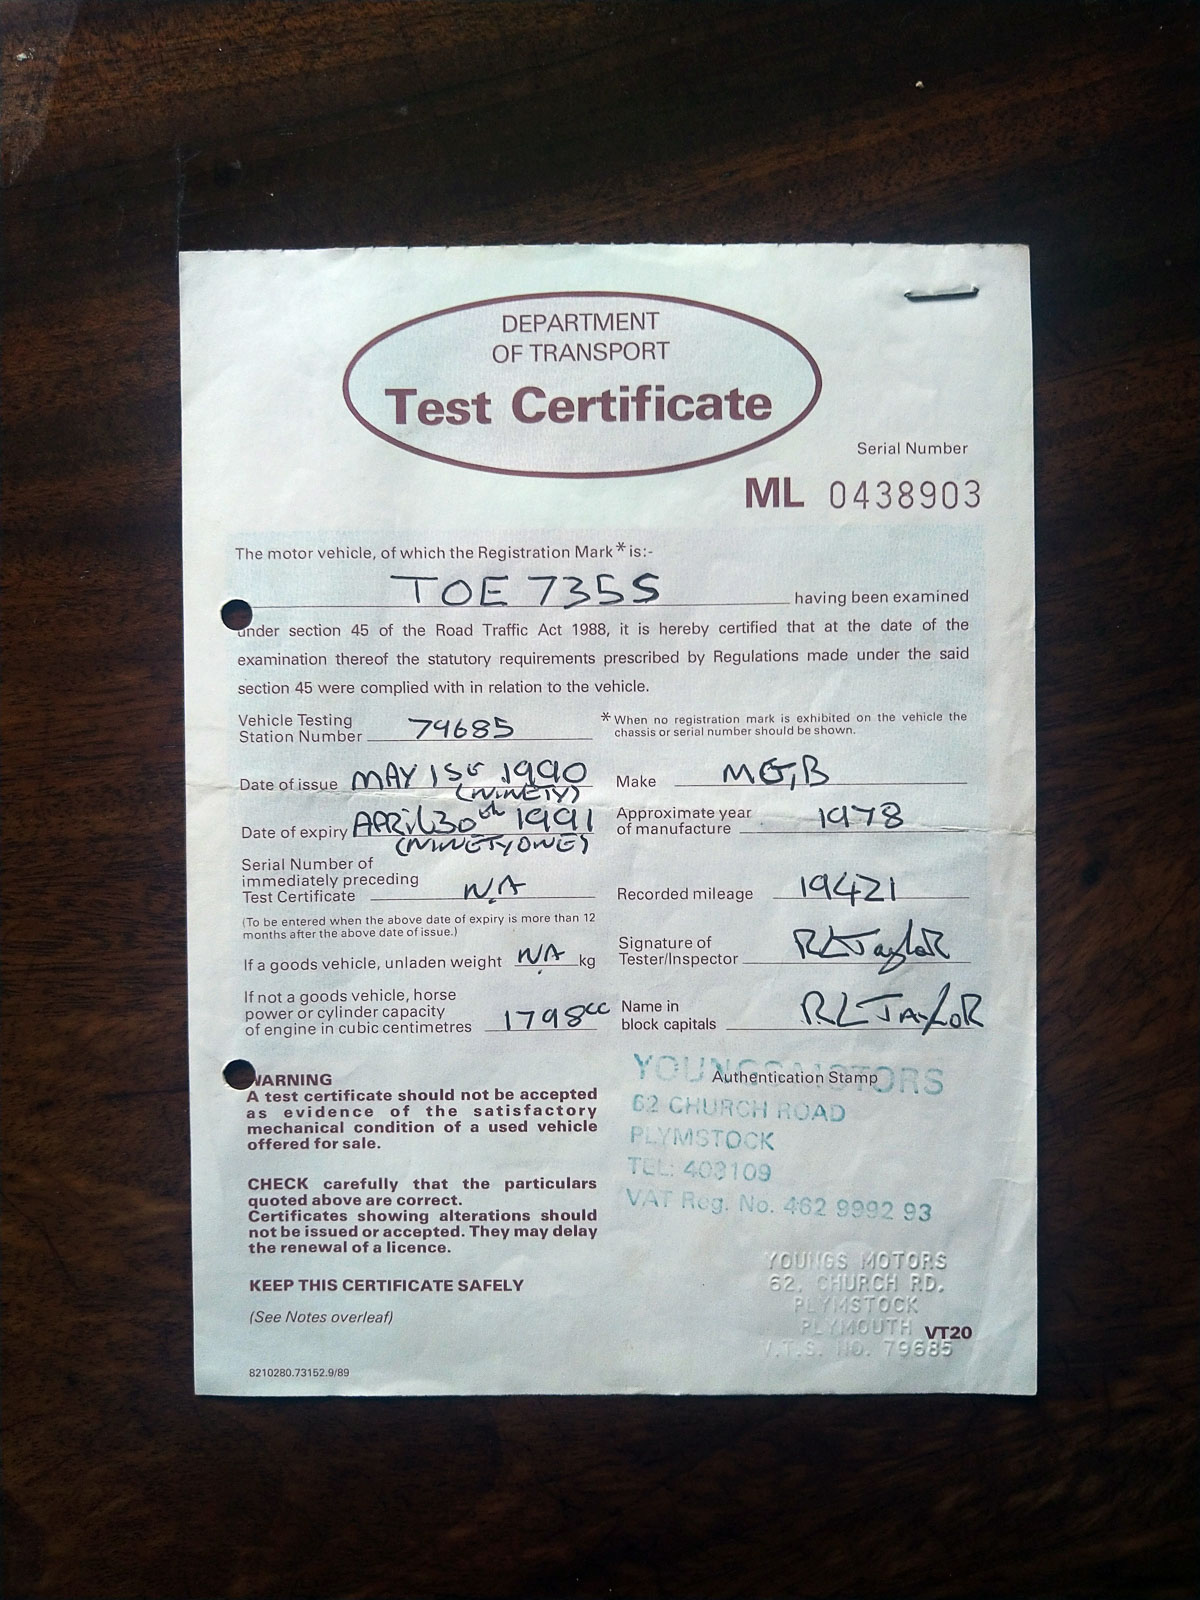 DEPARTMENT
OF TRANSPORT
Test Certificate
Serial Number
ML 0438903
The motor vehicle, of which the Registration Mark * is:-
TOE 735S
having been examined
under section 45 of the Road Traffic Act 1988, it is hereby certified that at the date of the
examination thereof the statutory requirements prescribed by Regulations made under the said
section 45 were complied with in relation to the vehicle.
Vehicle Testing
Station Number 79685
* When no registration mark is exhibited on the vehicle the
chassis or serial number should be shown.
Date of issue MAY 1ST 1990
(NINETY)
Make MG,B
Date of expiry APRIL 30th 1991
(NINETYONE)
Approximate year
of manufacture 1978
Serial Number of
immediately preceding
Test Certificate N.A
Recorded mileage 19421
(To be entered when the above date of expiry is more than 12
months after the above date of issue.)
Signature of
Tester/Inspector RLTaylor
If a goods vehicle, unladen weight N.A kg
If not a goods vehicle, horse
power or cylinder capacity
of engine in cubic centimetres 1798cc
Name in
block capitals R.L TAYLOR
WARNING
A test certificate should not be accepted
as evidence of the satisfactory
mechanical condition of a used vehicle
offered for sale.
CHECK carefully that the particulars
quoted above are correct.
Certificates showing alterations should
not be issued or accepted. They may delay
the renewal of a licence.
KEEP THIS CERTIFICATE SAFELY
(See Notes overleaf)
8210280.73152.9/89
Authentication Stamp
YOUNGS MOTORS
62 CHURCH ROAD
PLYMSTOCK
TEL: 403109
VAT Reg. No. 462 9992 93
YOUNGS MOTORS
62, CHURCH RD.
PLYMSTOCK
PLYMOUTH
V.T.S. NO. 79685
VT20